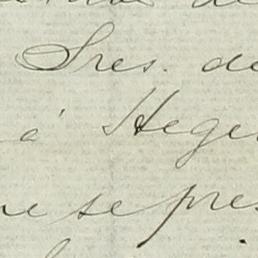 Sres. de
á Hege
ne se pres